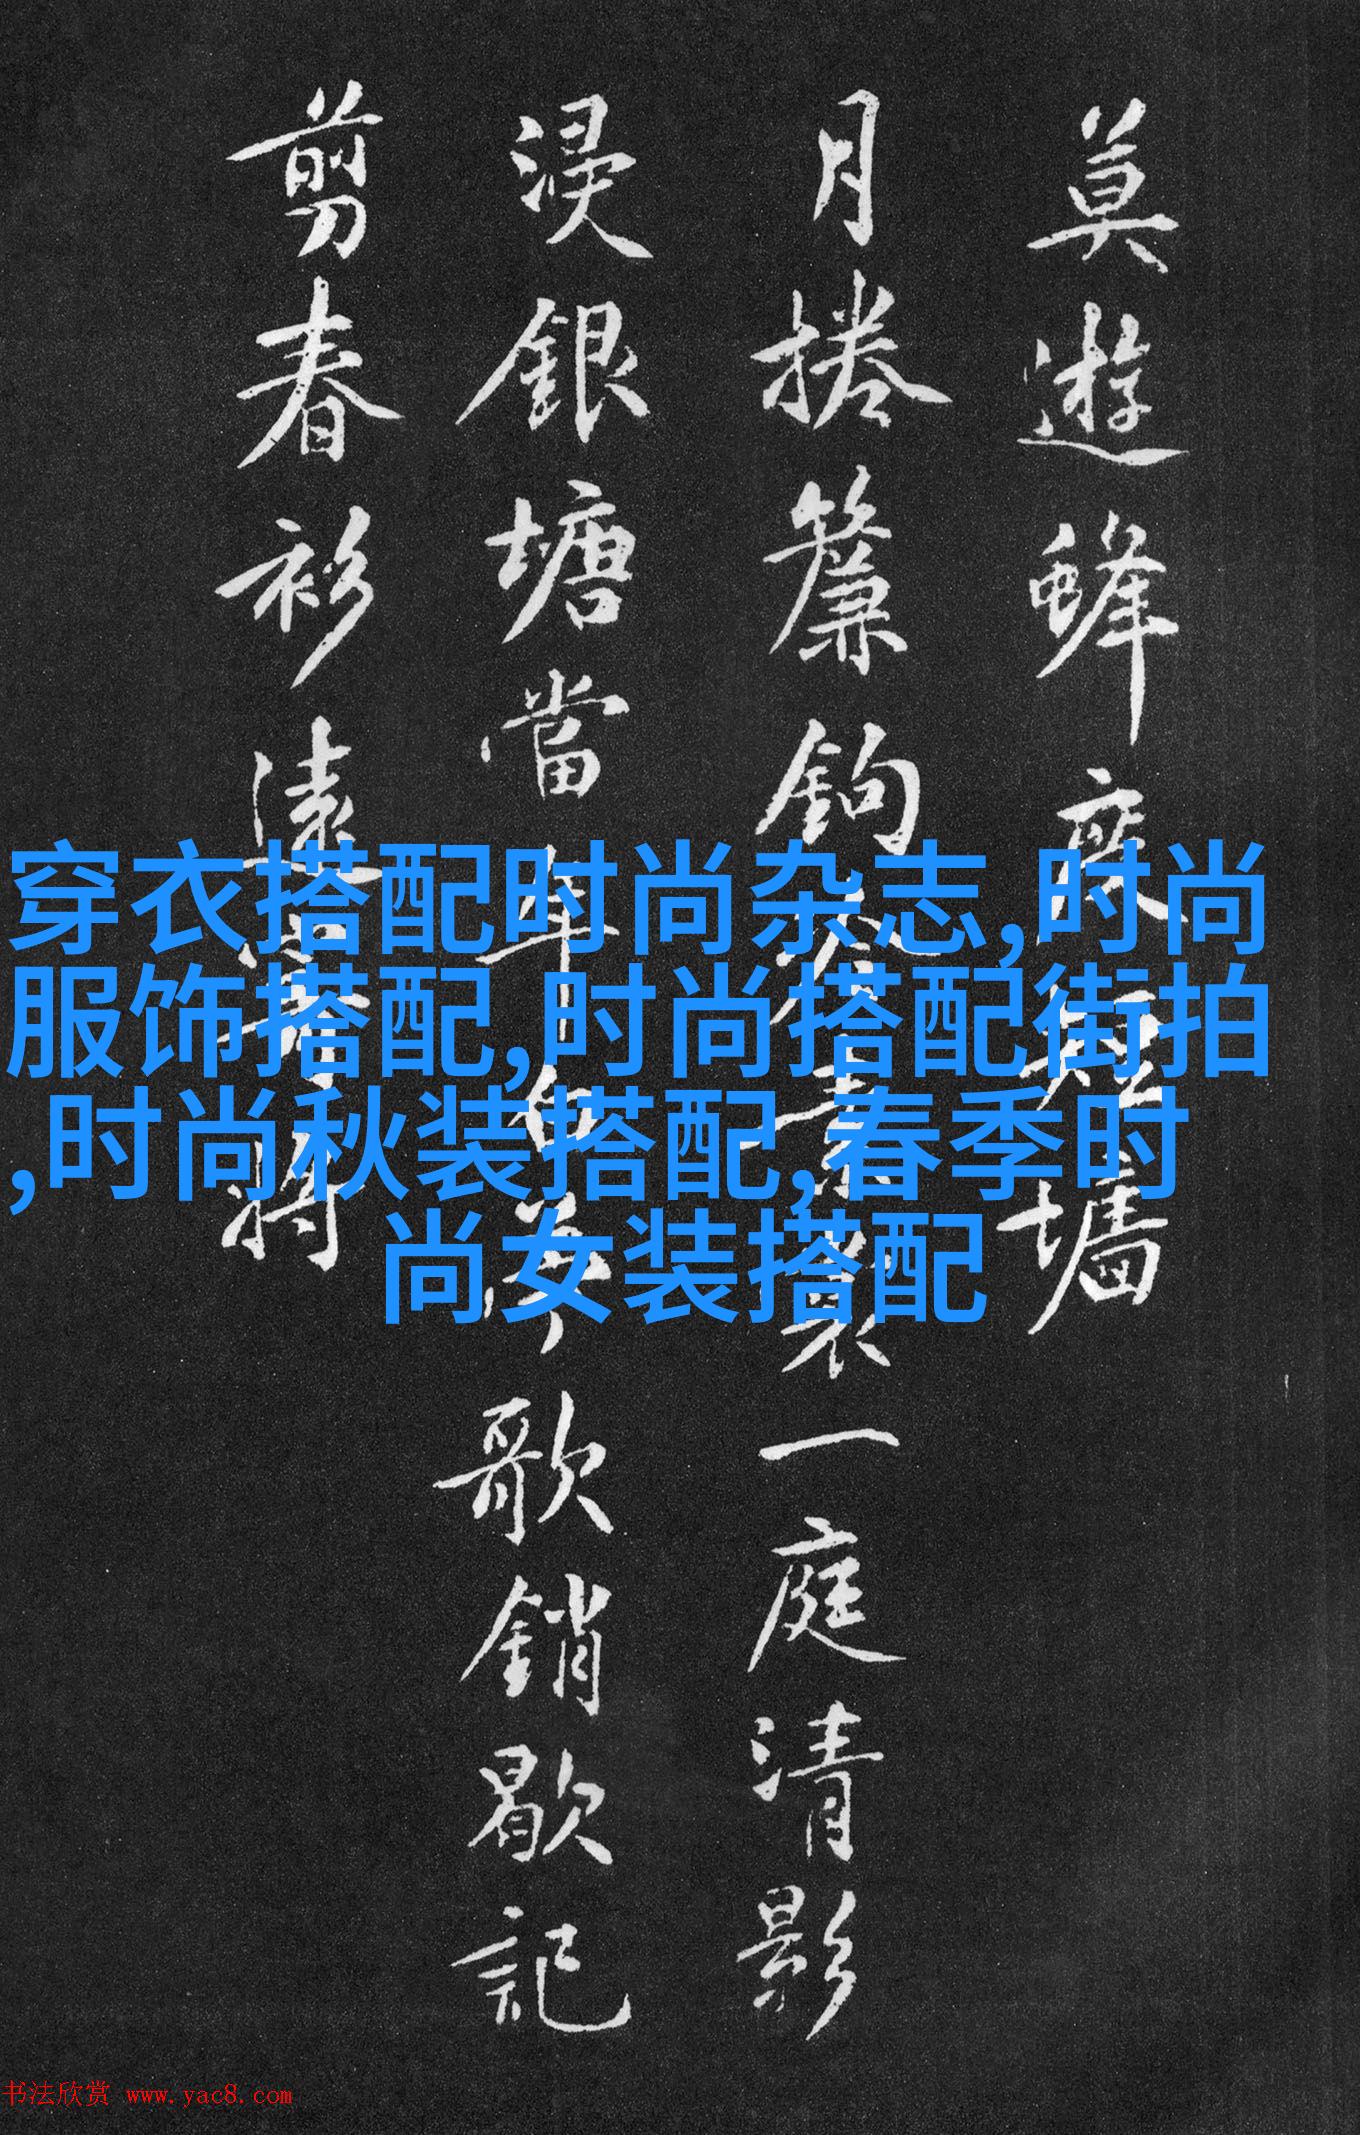 莫遊蜂痕短墙
月捲簾鉤
一庭清影
浸銀塘當年白
歌銷歇記
剪春衫遠
将
穿衣搭配时尚杂志,时尚
服饰搭配,时尚搭配街拍
,时尚秋装搭配,春季时
尚女装搭配
书法欣赏 www.yac8.com